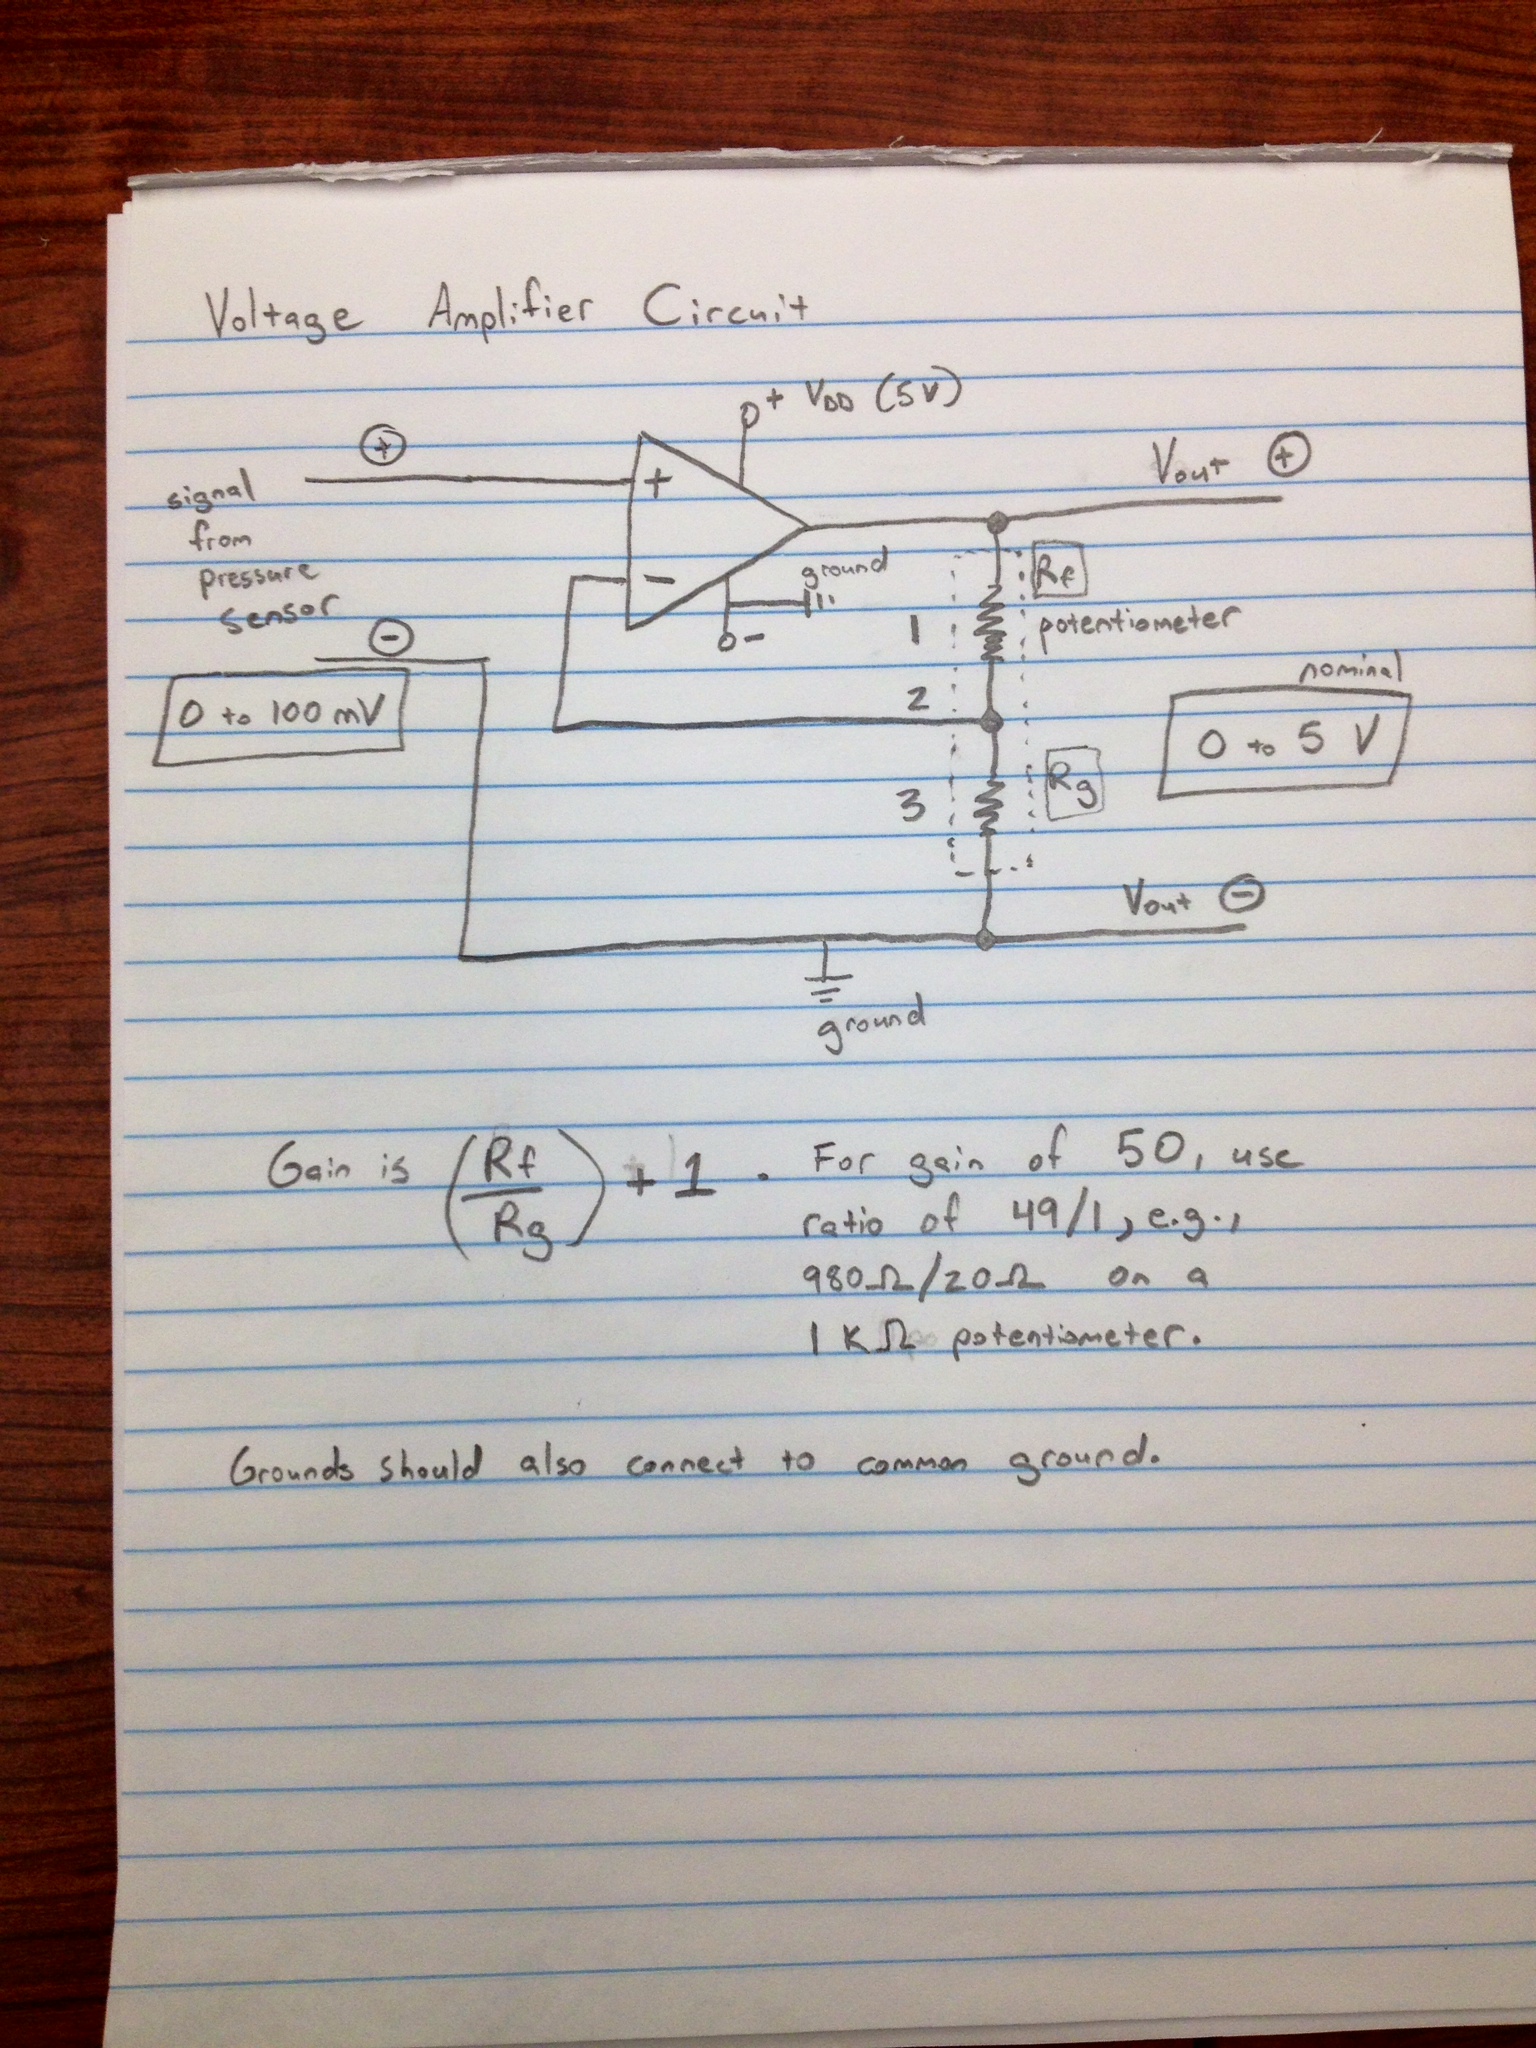 Voltage Amplifier Circuit
+ VDD (5V)
+
signal
from
pressure
sensor
+
−
ground
−
Vout +
Rf
1
potentiometer
−
2
nominal
0 to 100 mV
0 to 5 V
Rg
3
Vout −
ground
Gain is (Rf/Rg) + 1 . For gain of 50, use
ratio of 49/1, e.g.,
980Ω/20Ω on a
1 KΩ potentiometer.
Grounds should also connect to common ground.